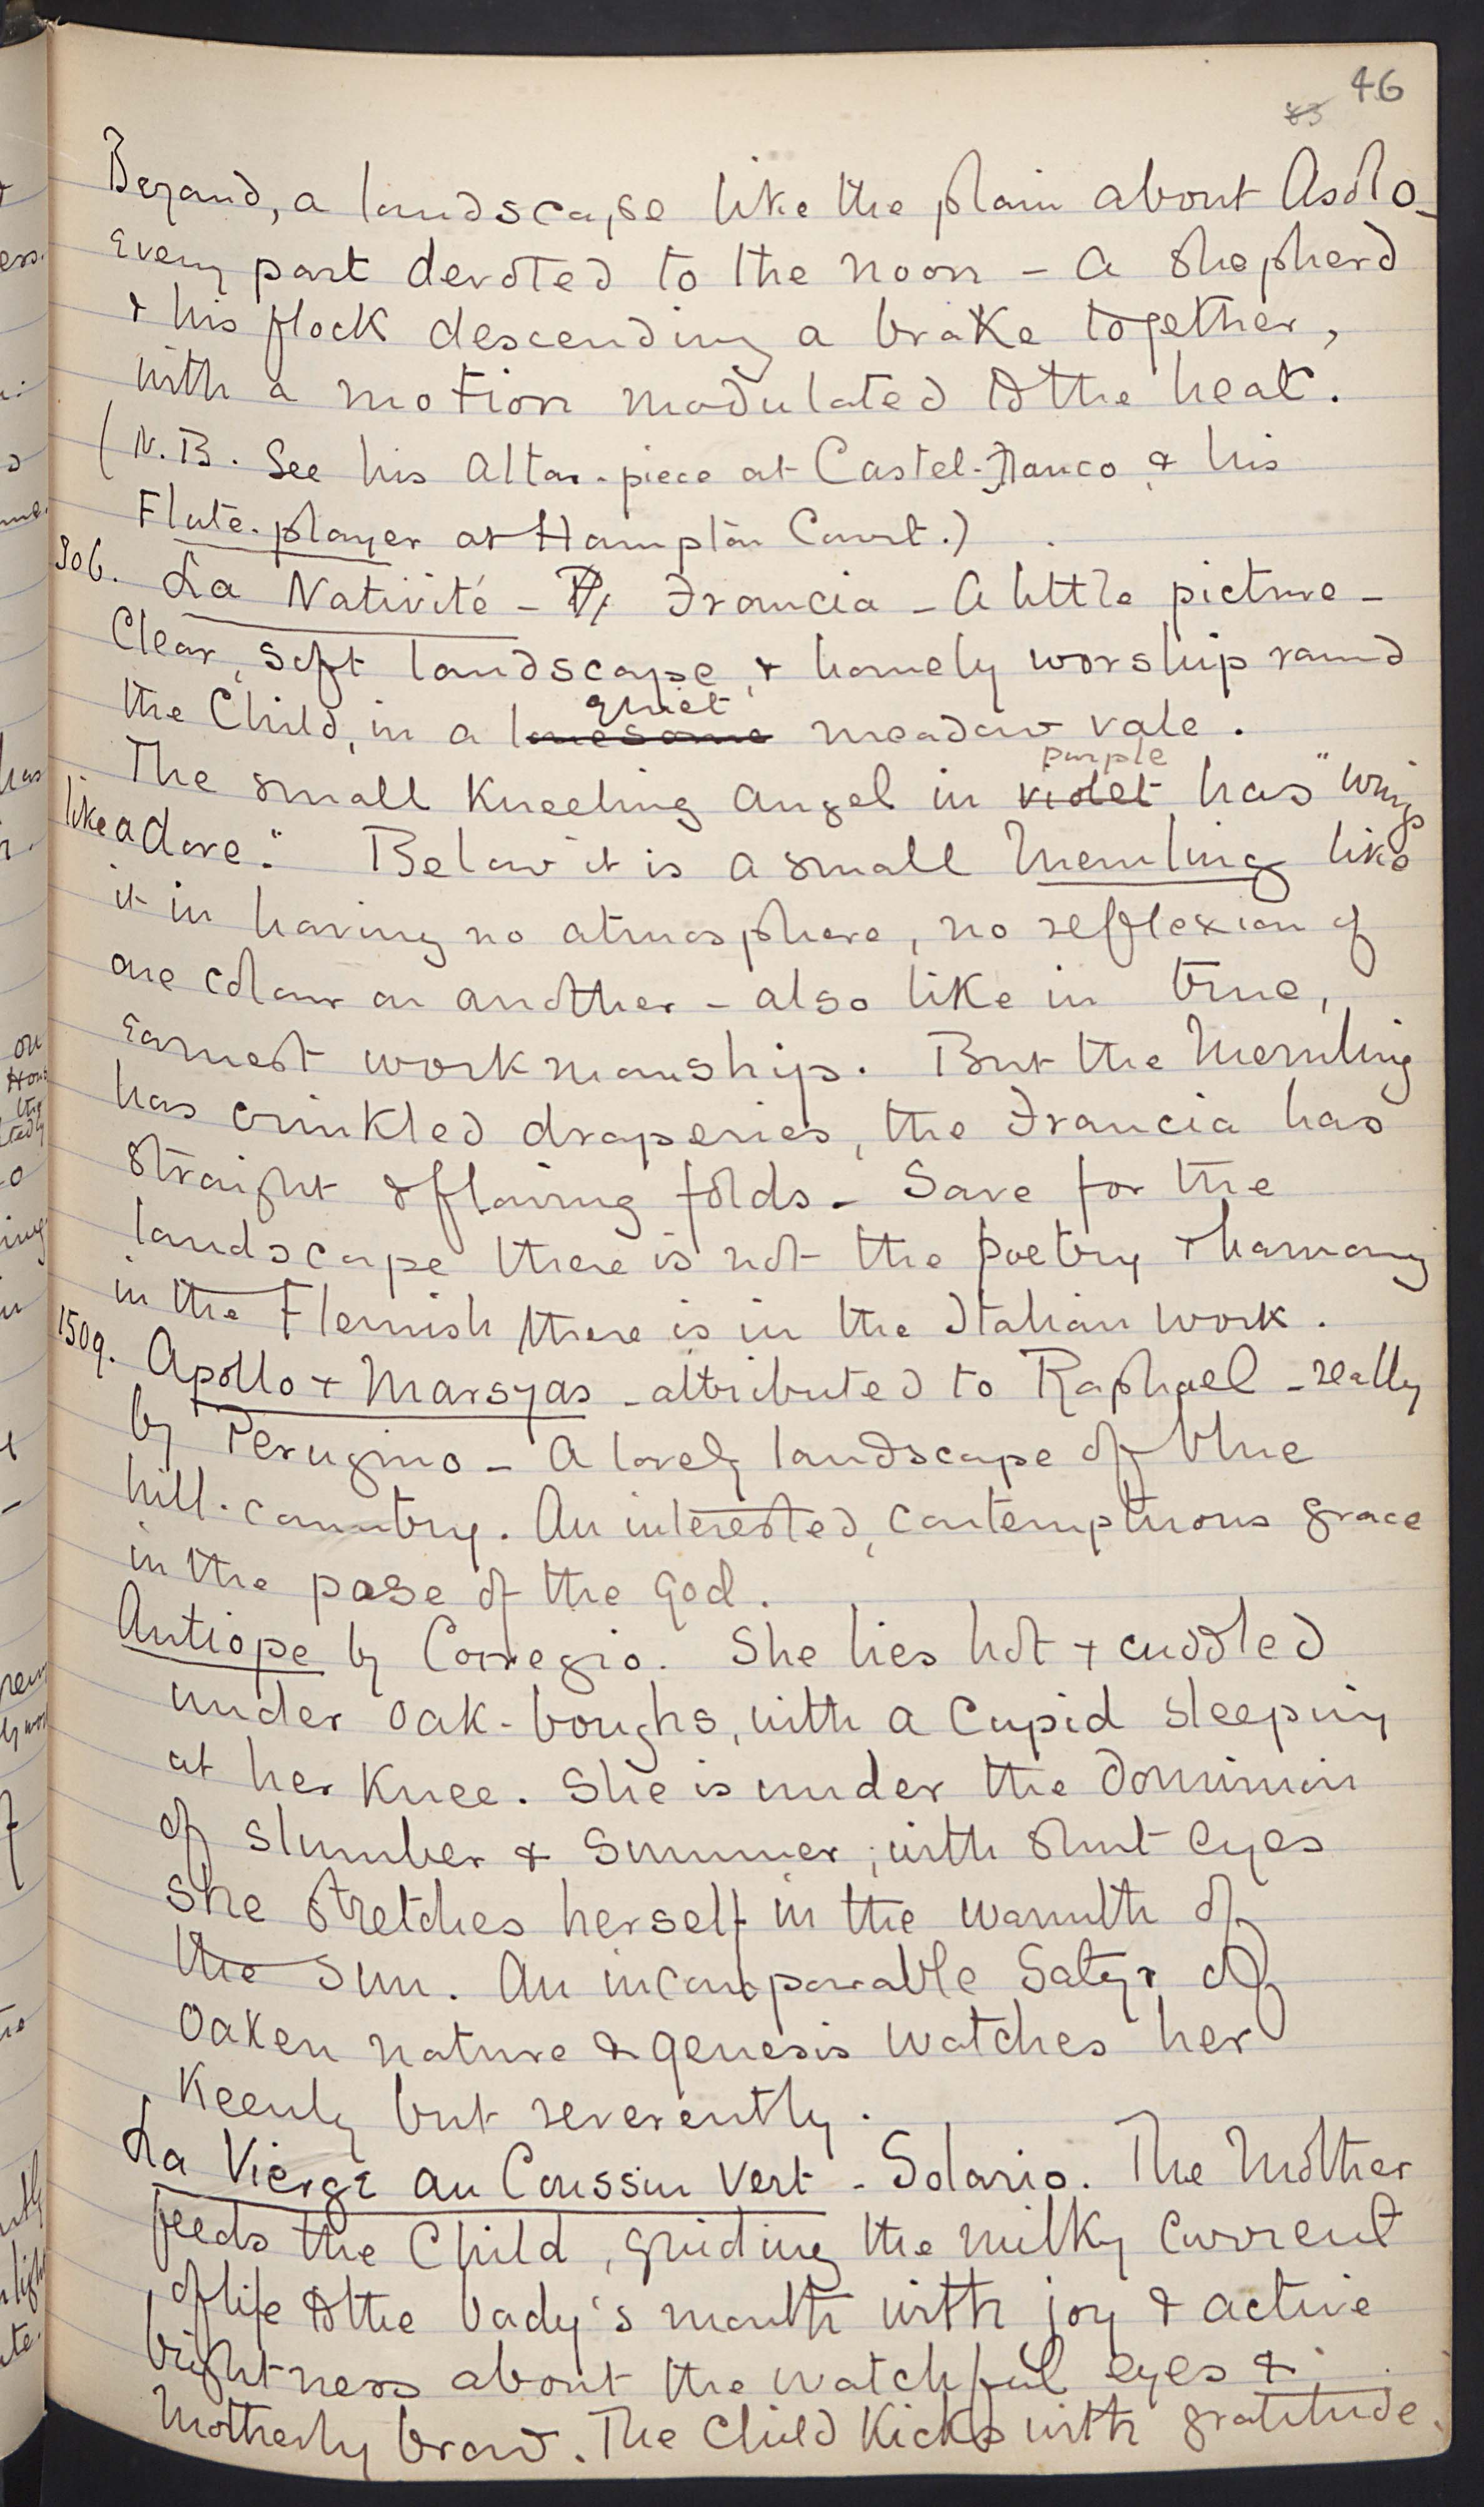 46
83
Beyond, a landscape like the plain about Asolo –
Every part devoted to the noon – a shepherd
& his flock descending a brake together,
with a motion modulated to the heat.
(N.B. See his Altar-piece at Castel-Franco, & his
Flute-player at Hampton Court.)
306. La Nativité – Francia – A little picture –
Clear, soft landscape, & homely worship round
the Child, in a lonesome quiet meadow vale.
The small kneeling angel in violet purple has "wings
like a dove." Below it is a small Memling like
it in having no atmosphere, no reflexion of
one colour on another – also like in true,
earnest workmanship. But the Memling
has crinkled draperies, the Francia has
straight & flowing folds – Save for the
landscape there is not the poetry & harmony
in the Flemish there is in the Italian work.
1509. Apollo & Marsyas – attributed to Raphael – really
by Perugino – A lovely landscape of blue
hill-country. An interested, contemptuous grace
in the pose of the God.
Antiope by Corregio. She lies hot & cuddled
under oak-boughs, with a Cupid sleeping
at her knee. She is under the dominion
of slumber & Summer; with shut eyes
she stretches herself in the warmth of
the sun. An incomparable Satyr of
oaken nature & genesis watches her
keenly but reverently.
La Vierge au Coussin Vert – Solario. The Mother
feeds the Child, guiding the milky current
of life to the bady's mouth with joy & active
brightness about the watchful eyes &
Motherly brow. The Child kicks with gratitude.